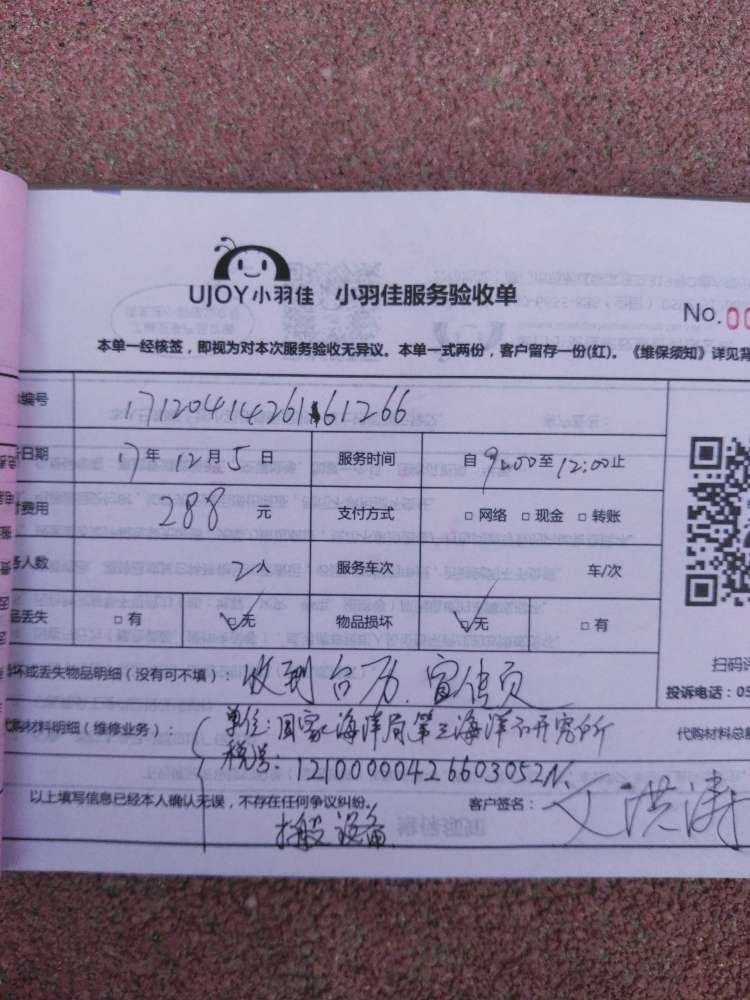 UJOY小羽佳 小羽佳服务验收单
No.00
本单一经核签，即视为对本次服务验收无异议。本单一式两份，客户留存一份(红)。《维保须知》详见背
编号 17120414261 61266
日期 17年12月5日 服务时间 自9:00至12:00止
费用 288元 支付方式 □网络 □现金 □转账
人数 2人 服务车次 车/次
丢失 □有 ☑无 物品损坏 ☑无 □有
扫码评
坏或丢失物品明细（没有可不填）：收到台历、宣传页
投诉电话：05
代购材料明细（维修业务）： 单位：国家海洋局第三海洋研究所 代购材料总额
税号：12100000426603052N
以上填写信息已经本人确认无误，不存在任何争议纠纷。 客户签名：文洪涛
搬设备